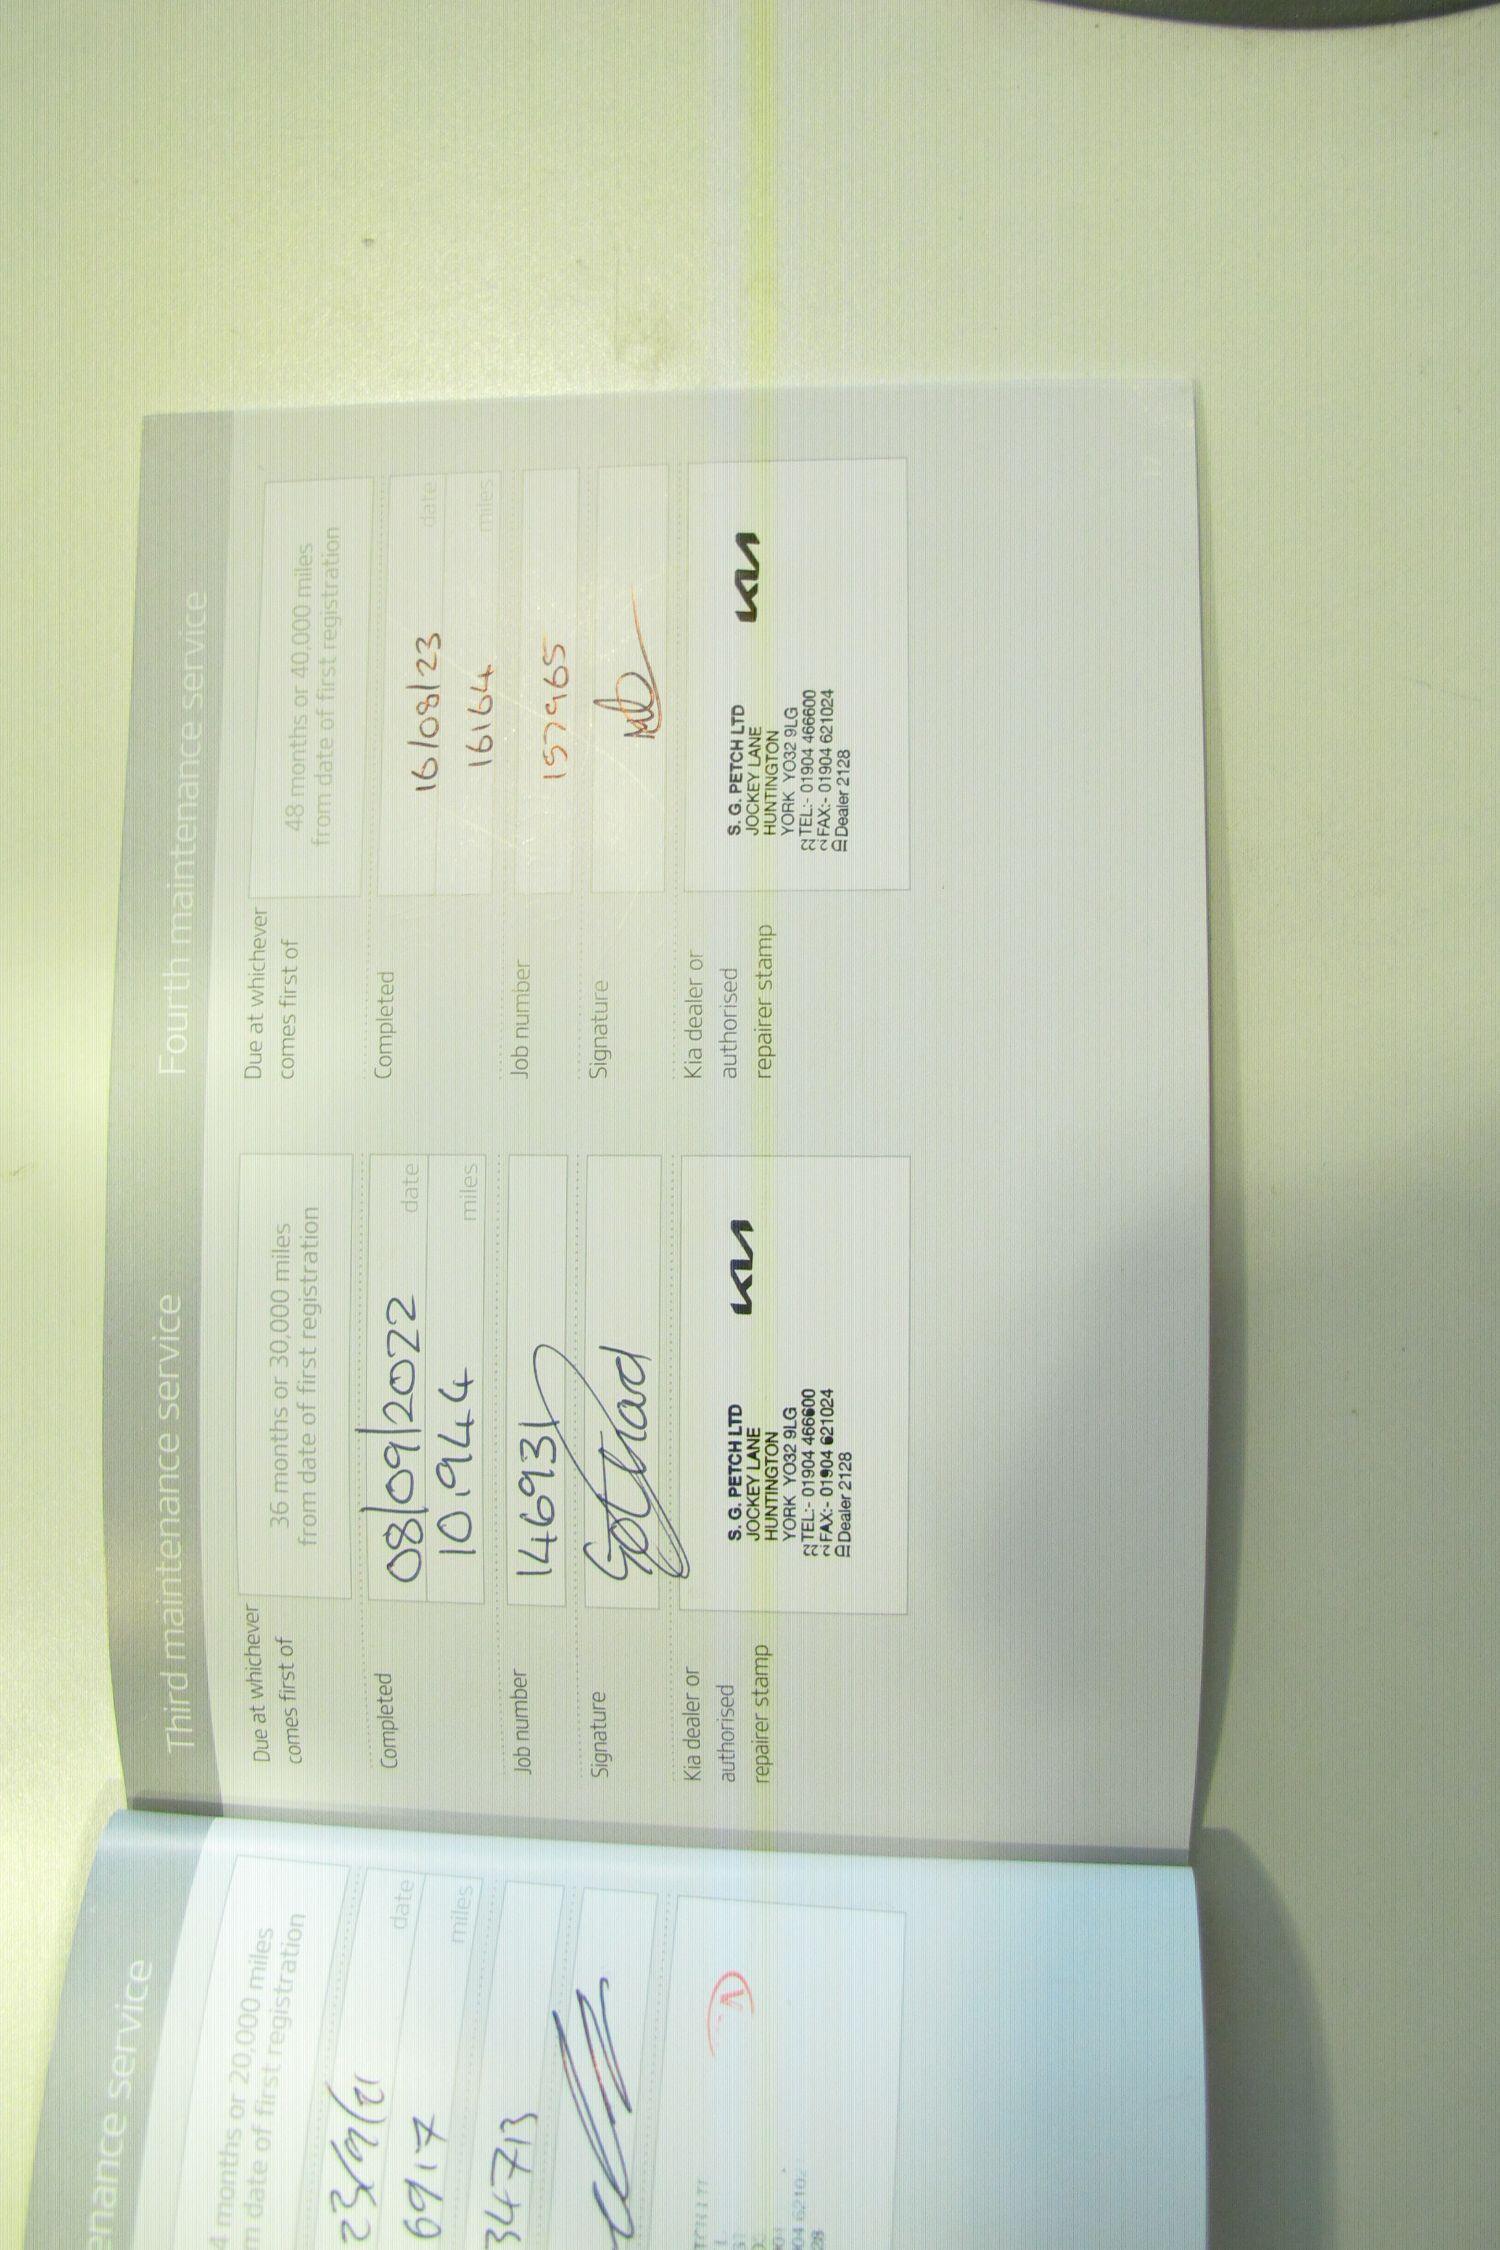 nance service
4 months or 20,000 miles
m date of first registration
23/9/21
date
6917
miles
34713
28
Third maintenance service
Due at whichever
comes first of
36 months or 30,000 miles
from date of first registration
Completed
08/09/2022
date
10,944
miles
Job number
146931
Signature
Kia dealer or
authorised
repairer stamp
S. G. PETCH LTD
JOCKEY LANE
HUNTINGTON
YORK YO32 9LG
TEL:- 01904 466600
FAX:- 01904 621024
Dealer 2128
KIA
Fourth maintenance service
Due at whichever
comes first of
48 months or 40,000 miles
from date of first registration
Completed
16/08/23
date
16164
miles
Job number
157965
Signature
Kia dealer or
authorised
repairer stamp
S. G. PETCH LTD
JOCKEY LANE
HUNTINGTON
YORK YO32 9LG
TEL:- 01904 466600
FAX:- 01904 621024
Dealer 2128
KIA
17